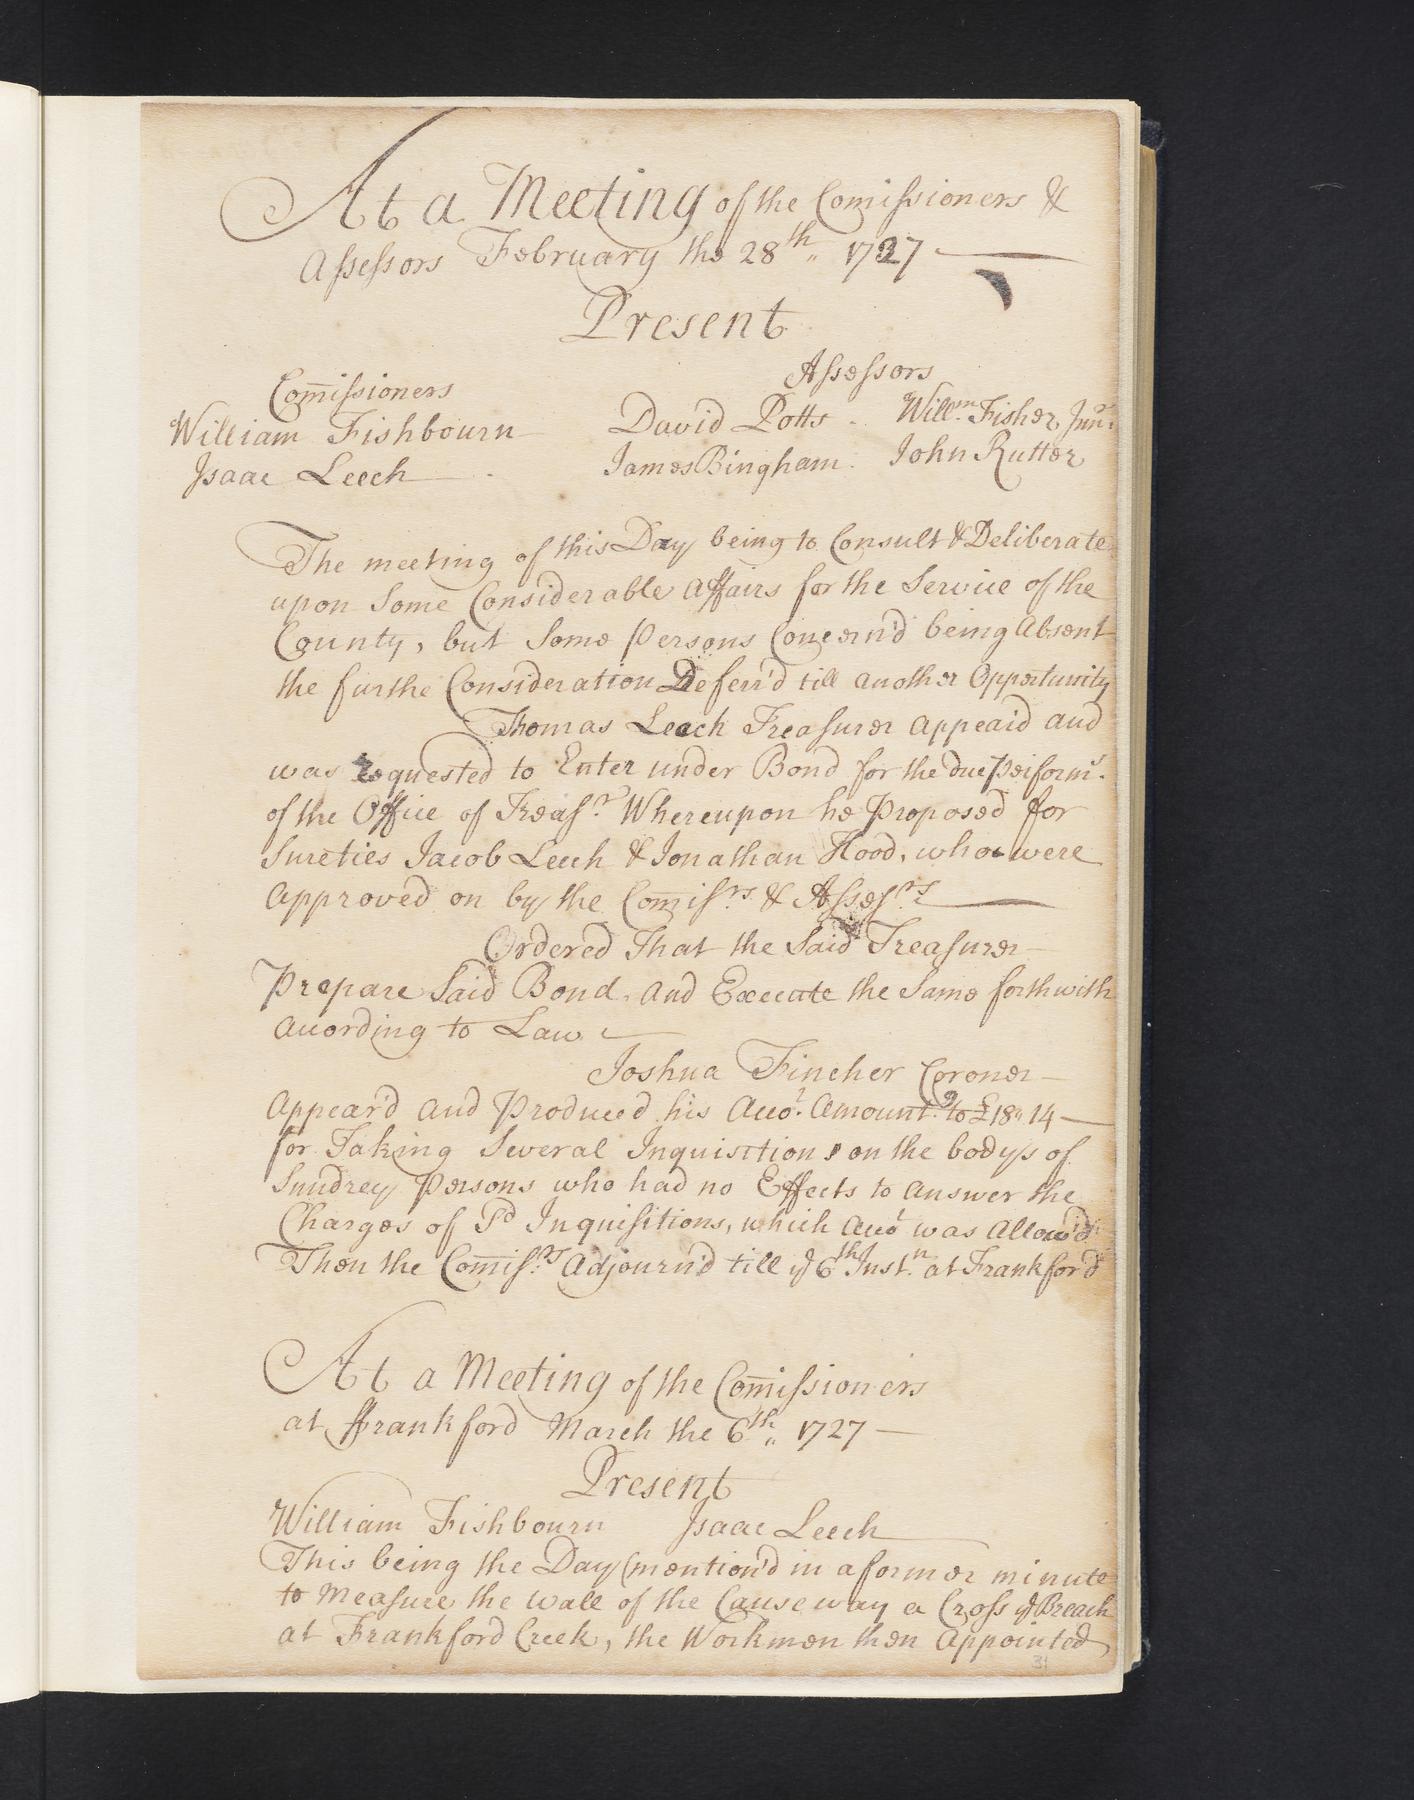 At a Meeting of the Com̄issioners &
Assessors February the 28th 1727
Present
Com̄issioners
Assessors
William Fishbourn
David Potts
Willm. Fisher Junr.
Isaac Leech
James Bingham
John Rutter
The meeting of this Day being to Consult & Deliberate
upon Some Considerable Affairs for the Service of the
County, but Some Persons Concern'd being Absent
the furthe Consideration Deferr'd till another Opportunity
Thomas Leech Treasurer appeard and
was requested to Enter under Bond for the due Perform.
of the Office of Treasr. Whereupon he Proposed for
Sureties Jacob Leech & Jonathan Hood, who were
approved on by the Com̄isrs. & Assesrs.
Ordered That the Said Treasurer
Prepare Said Bond, and Execute the Same forthwith
according to Law
Joshua Fincher Coroner
Appear'd and Produced his Acco.t Amount.g to £18" 14
for Taking Several Inquisitions on the bodys of
Sundrey Persons who had no Effects to answer the
Charges of Sd Inquisitions, which Accot was allow'd
Then the Com̄isrs. Adjourn'd till ye 6th Instn. at Frankford
At a Meeting of the Com̄issioners
at ffrankford March the 6th 1727
Present
William Fishbourn Isaac Leech
This being the Day mention'd in a former minute
to Measure the wall of the Causeway a Cross ye Breach
at Frankford Creek, the Workmen then Appointed
31